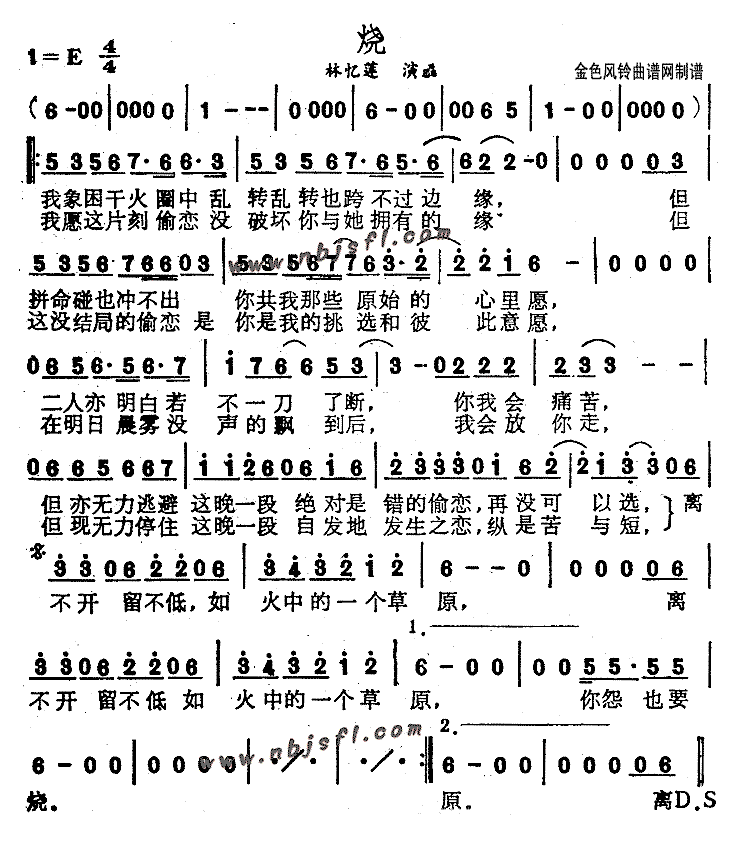 烧
1=E 4/4
林忆莲 演唱
金色风铃曲谱网制谱
( 6-00 | 000 0 | 1 - - - | 0 000 | 6-00 | 0065 | 1-00 | 0000 )
5 3567· 66·3 | 535 67·65·6 | 622-0 | 00003
我象困干火圈中乱 转乱转也跨不过边 缘， 但
我愿这片刻偷恋没 破坏你与她拥有的 缘 但
www.nbjsfl.com
535676603 | 53567763·2 | 2216 - | 0000
拼命碰也冲不出 你共我那些原始的 心里愿，
这没结局的偷恋是 你是我的挑选和彼 此意愿，
0656·56·7 | 176653 | 3-0222 | 233 - -
二人亦明白若 不一刀了断， 你我会 痛苦，
在明日晨雾没 声的飘到后， 我会放 你走，
06656667 | 112606016 | 233303016 2 | 213306
但亦无力逃避 这晚一段 绝对是 错的偷恋，再没可 以选， 离
但现无力停住 这晚一段 自发地 发生之恋，纵是苦 与短，
3306 2206 | 343212 | 6--0 | 00006
不开 留不低，如 火中的一个草 原， 离
1.
3306 2206 | 343212 | 6-00 | 0055·55
不开 留不低如 火中的一个草 原， 你怨也要
www.nbjsfl.com
2.
6-00 | 0000 | 6-00 | 00006
烧． 原． 离D.S